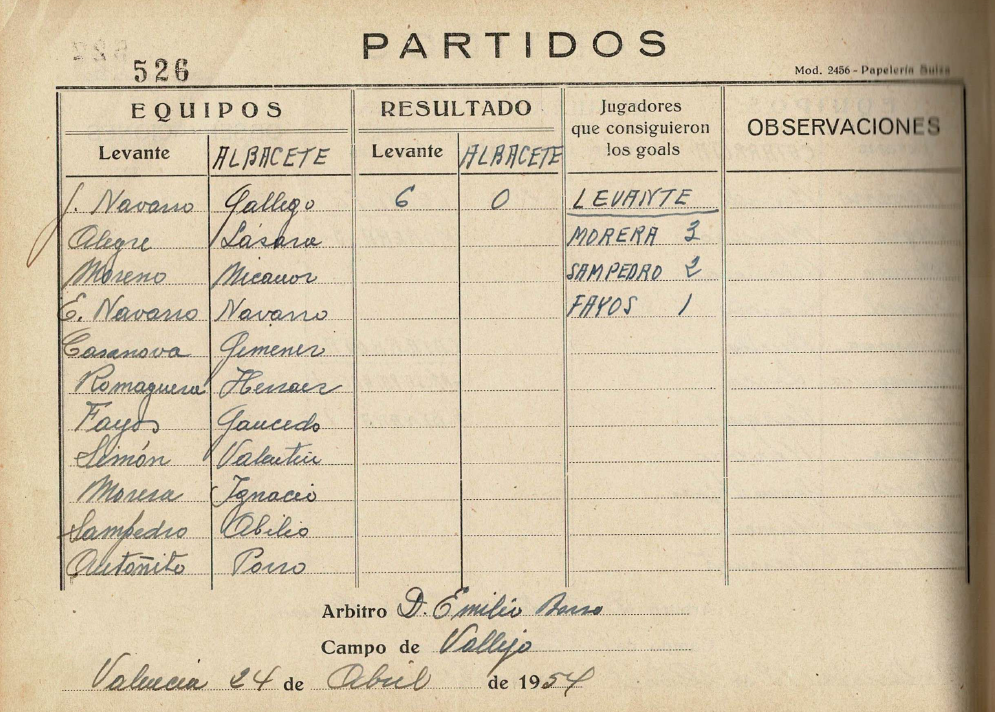 PARTIDOS
526
Mod. 2456 - Papelería Suiza
EQUIPOS RESULTADO Jugadores que consiguieron los goals OBSERVACIONES
Levante ALBACETE Levante ALBACETE
J. Navarro Gallego 6 0 LEVANTE
Alegre Lásara MORERA 3
Moreno Nicanor SAMPEDRO 2
E. Navarro Navarro FAYOS 1
Casanova Gimenez
Romaguera Herraez
Fayos Gaucedo
Simón Valentin
Morera Ignacio
Sampedro Abilio
Antoñito Porro
Arbitro D. Emilio
Campo de Vallejo
Valencia 24 de Abril de 1954